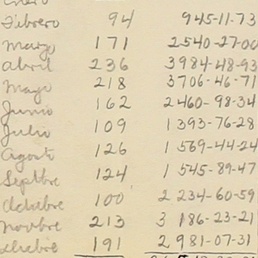 Enero
Febrero 94 945-11-73
Marzo 171 2540-27-00
Abril 236 3984-48-93
Mayo 218 3706-46-71
Junio 162 2460-98-34
Julio 109 1393-76-28
Agosto 126 1569-44-24
Septbre 124 1545-89-47
Octubre 100 2234-60-59
Novbre 213 3186-23-21
191 2981-07-31